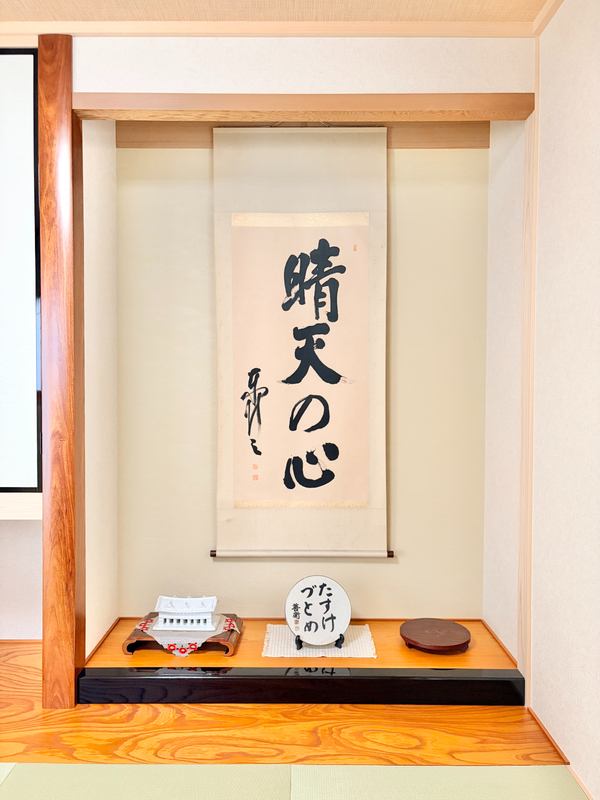 晴天の心
たすけ
づとめ
善衞